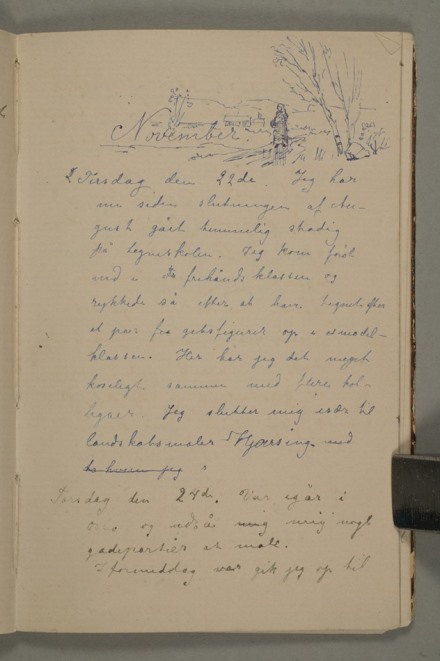 November.
Tirsdag den 22de. Jeg har
nu siden slutningen af Au-
gust gået temmelig stadig
på tegneskolen. Jeg kom først
ned i frihåndsklassen og
rykkede så efter at have tegnet efter
et par fra gibsfigurer op i modèl-
klassen. Her har jeg det meget
koseligt sammen med flere kol-
legaer. Jeg slutter mig især til
landskabsmaler Hjersing. med
hvem jeg
Torsdag den 24de. Var igår i
og udså mig nogle
gadepartier at male.
I formiddag gik jeg op til